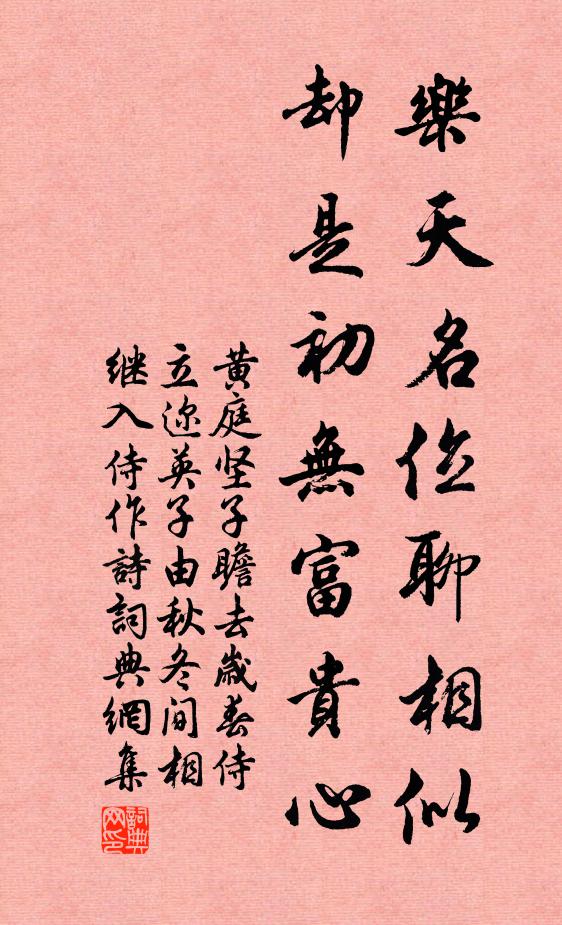 樂天名位聊相似
却是初無富貴心
黄庭坚子瞻去歲春侍
立迩英子由秋冬间相
继入侍作詩詞典網集
詞典网印